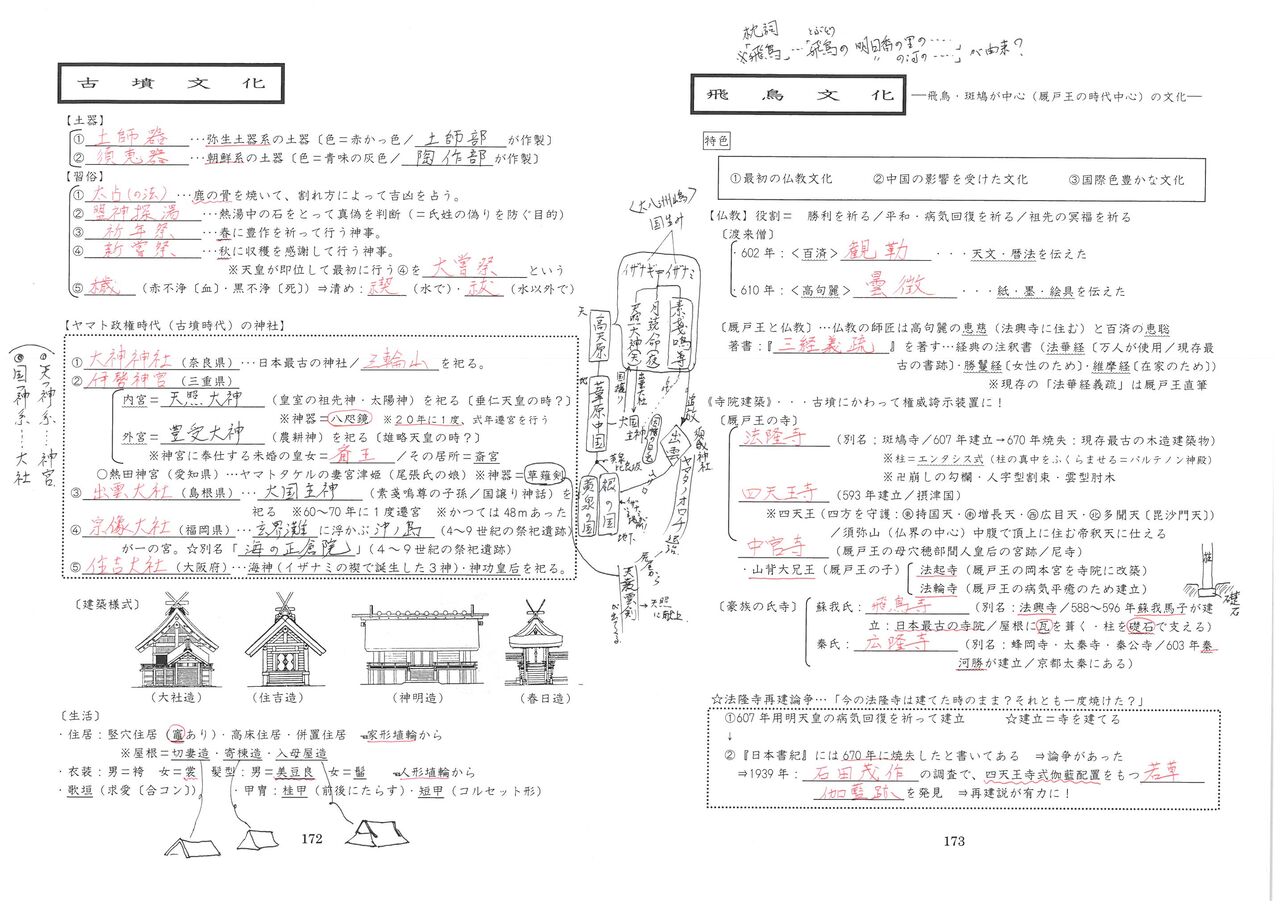 古墳文化
【土器】
① 土師器 …弥生土器系の土器〔色＝赤かっ色／ 土師部 が作製〕
② 須恵器 …朝鮮系の土器〔色＝青味の灰色／ 陶作部 が作製〕
【習俗】
① 太占(の法) …鹿の骨を焼いて、割れ方によって吉凶を占う。
② 盟神探湯 …熱湯中の石をとって真偽を判断（＝氏姓の偽りを防ぐ目的）
③ 祈年祭 …春に豊作を祈って行う神事。
④ 新嘗祭 …秋に収穫を感謝して行う神事。
※天皇が即位して最初に行う④を 大嘗祭 という
⑤ 穢 （赤不浄〔血〕・黒不浄〔死〕）⇒清め： 禊 （水で）・ 祓 （水以外で）
【ヤマト政権時代（古墳時代）の神社】
① 大神神社 （奈良県）…日本最古の神社／ 三輪山 を祀る。
② 伊勢神宮 （三重県）
内宮＝ 天照大神 （皇室の祖先神・太陽神）を祀る〔垂仁天皇の時？〕
※神器＝八咫鏡 ※２０年に１度、式年遷宮を行う
外宮＝ 豊受大神 （農耕神）を祀る〔雄略天皇の時？〕
※神宮に奉仕する未婚の皇女＝ 斎王 ／その居所＝斎宮
○熱田神宮（愛知県）…ヤマトタケルの妻宮津姫（尾張氏の娘）※神器＝草薙剣
③ 出雲大社 （島根県）… 大国主神 （素戔嗚尊の子孫／国譲り神話）を
祀る ※60～70年に１度遷宮 ※かつては48ｍあった
④ 宗像大社 （福岡県）… 玄界灘 に浮かぶ 沖ノ島 （4～９世紀の祭祀遺跡）
が一の宮。☆別名「 海の正倉院 」（４～９世紀の祭祀遺跡）
⑤ 住吉大社 （大阪府）…海神（イザナミの禊で誕生した３神）・神功皇后を祀る。
◎天つ神系……神宮
◎国つ神系……大社
〔建築様式〕
（大社造） （住吉造） （神明造） （春日造）
〔生活〕
・住居：竪穴住居（竈あり）・高床住居・併置住居 ←家形埴輪から
※屋根＝切妻造・寄棟造・入母屋造
・衣装：男＝袴 女＝裳 髪型：男＝美豆良 女＝髷 ←人形埴輪から
・歌垣（求愛〔合コン〕） ・甲冑：桂甲（前後にたらす）・短甲（コルセット形）
172
〈大八州嶋〉
国生み
イザナギ＝イザナミ
天
高天原
天照大神
月読命(夜
素戔嗚尊
地
葦原中国
国譲り
出雲大社
大国主神
追放
出雲
須佐神社
ヤマタノオロチ
退治
根の国
黄泉の国
地下
尾から
天叢雲剣
→天照に献上
枕詞
※「飛鳥」…「飛鳥の 明日香の里の……
〃 の河の……」が由来？
飛鳥文化 ―飛鳥・斑鳩が中心（厩戸王の時代中心）の文化―
特色
①最初の仏教文化 ②中国の影響を受けた文化 ③国際色豊かな文化
【仏教】役割＝ 勝利を祈る／平和・病気回復を祈る／祖先の冥福を祈る
〔渡来僧〕
・602年：＜百済＞ 観勒 ・・・天文・暦法を伝えた
・610年：＜高句麗＞ 曇徴 ・・・紙・墨・絵具を伝えた
〔厩戸王と仏教〕…仏教の師匠は高句麗の恵慈（法興寺に住む）と百済の恵聡
著書：『 三経義疏 』を著す…経典の注釈書（法華経〔万人が使用／現存最
古の書跡〕・勝鬘経〔女性のため〕・維摩経〔在家のため〕）
※現存の「法華経義疏」は厩戸王直筆
《寺院建築》・・・古墳にかわって権威誇示装置に！
〔厩戸王の寺〕
法隆寺 （別名：斑鳩寺／607年建立→670年焼失：現存最古の木造建築物）
※柱＝エンタシス式（柱の真中をふくらませる＝パルテノン神殿）
※卍崩しの勾欄・人字型割束・雲型肘木
四天王寺 （593年建立／摂津国）
※四天王（四方を守護：㊀東持国天・南増長天・西広目天・北多聞天〔毘沙門天〕）
／須弥山（仏界の中心）中腹で頂上に住む帝釈天に仕える
中宮寺 （厩戸王の母穴穂部間人皇后の宮跡／尼寺）
・山背大兄王（厩戸王の子） 法起寺（厩戸王の岡本宮を寺院に改築）
法輪寺（厩戸王の病気平癒のため建立）
柱
礎石
〔豪族の氏寺〕 蘇我氏： 飛鳥寺 （別名：法興寺／588～596年蘇我馬子が建
立：日本最古の寺院／屋根に瓦を葺く・柱を礎石で支える）
秦氏： 広隆寺 （別名：蜂岡寺・太秦寺・秦公寺／603年秦
河勝が建立／京都太秦にある）
☆法隆寺再建論争…「今の法隆寺は建てた時のまま？それとも一度焼けた？」
①607年用明天皇の病気回復を祈って建立 ☆建立＝寺を建てる
↓
②『日本書紀』には670年に焼失したと書いてある ⇒論争があった
⇒1939年： 石田茂作 の調査で、四天王寺式伽藍配置をもつ 若草
伽藍跡 を発見 ⇒再建説が有力に！
173